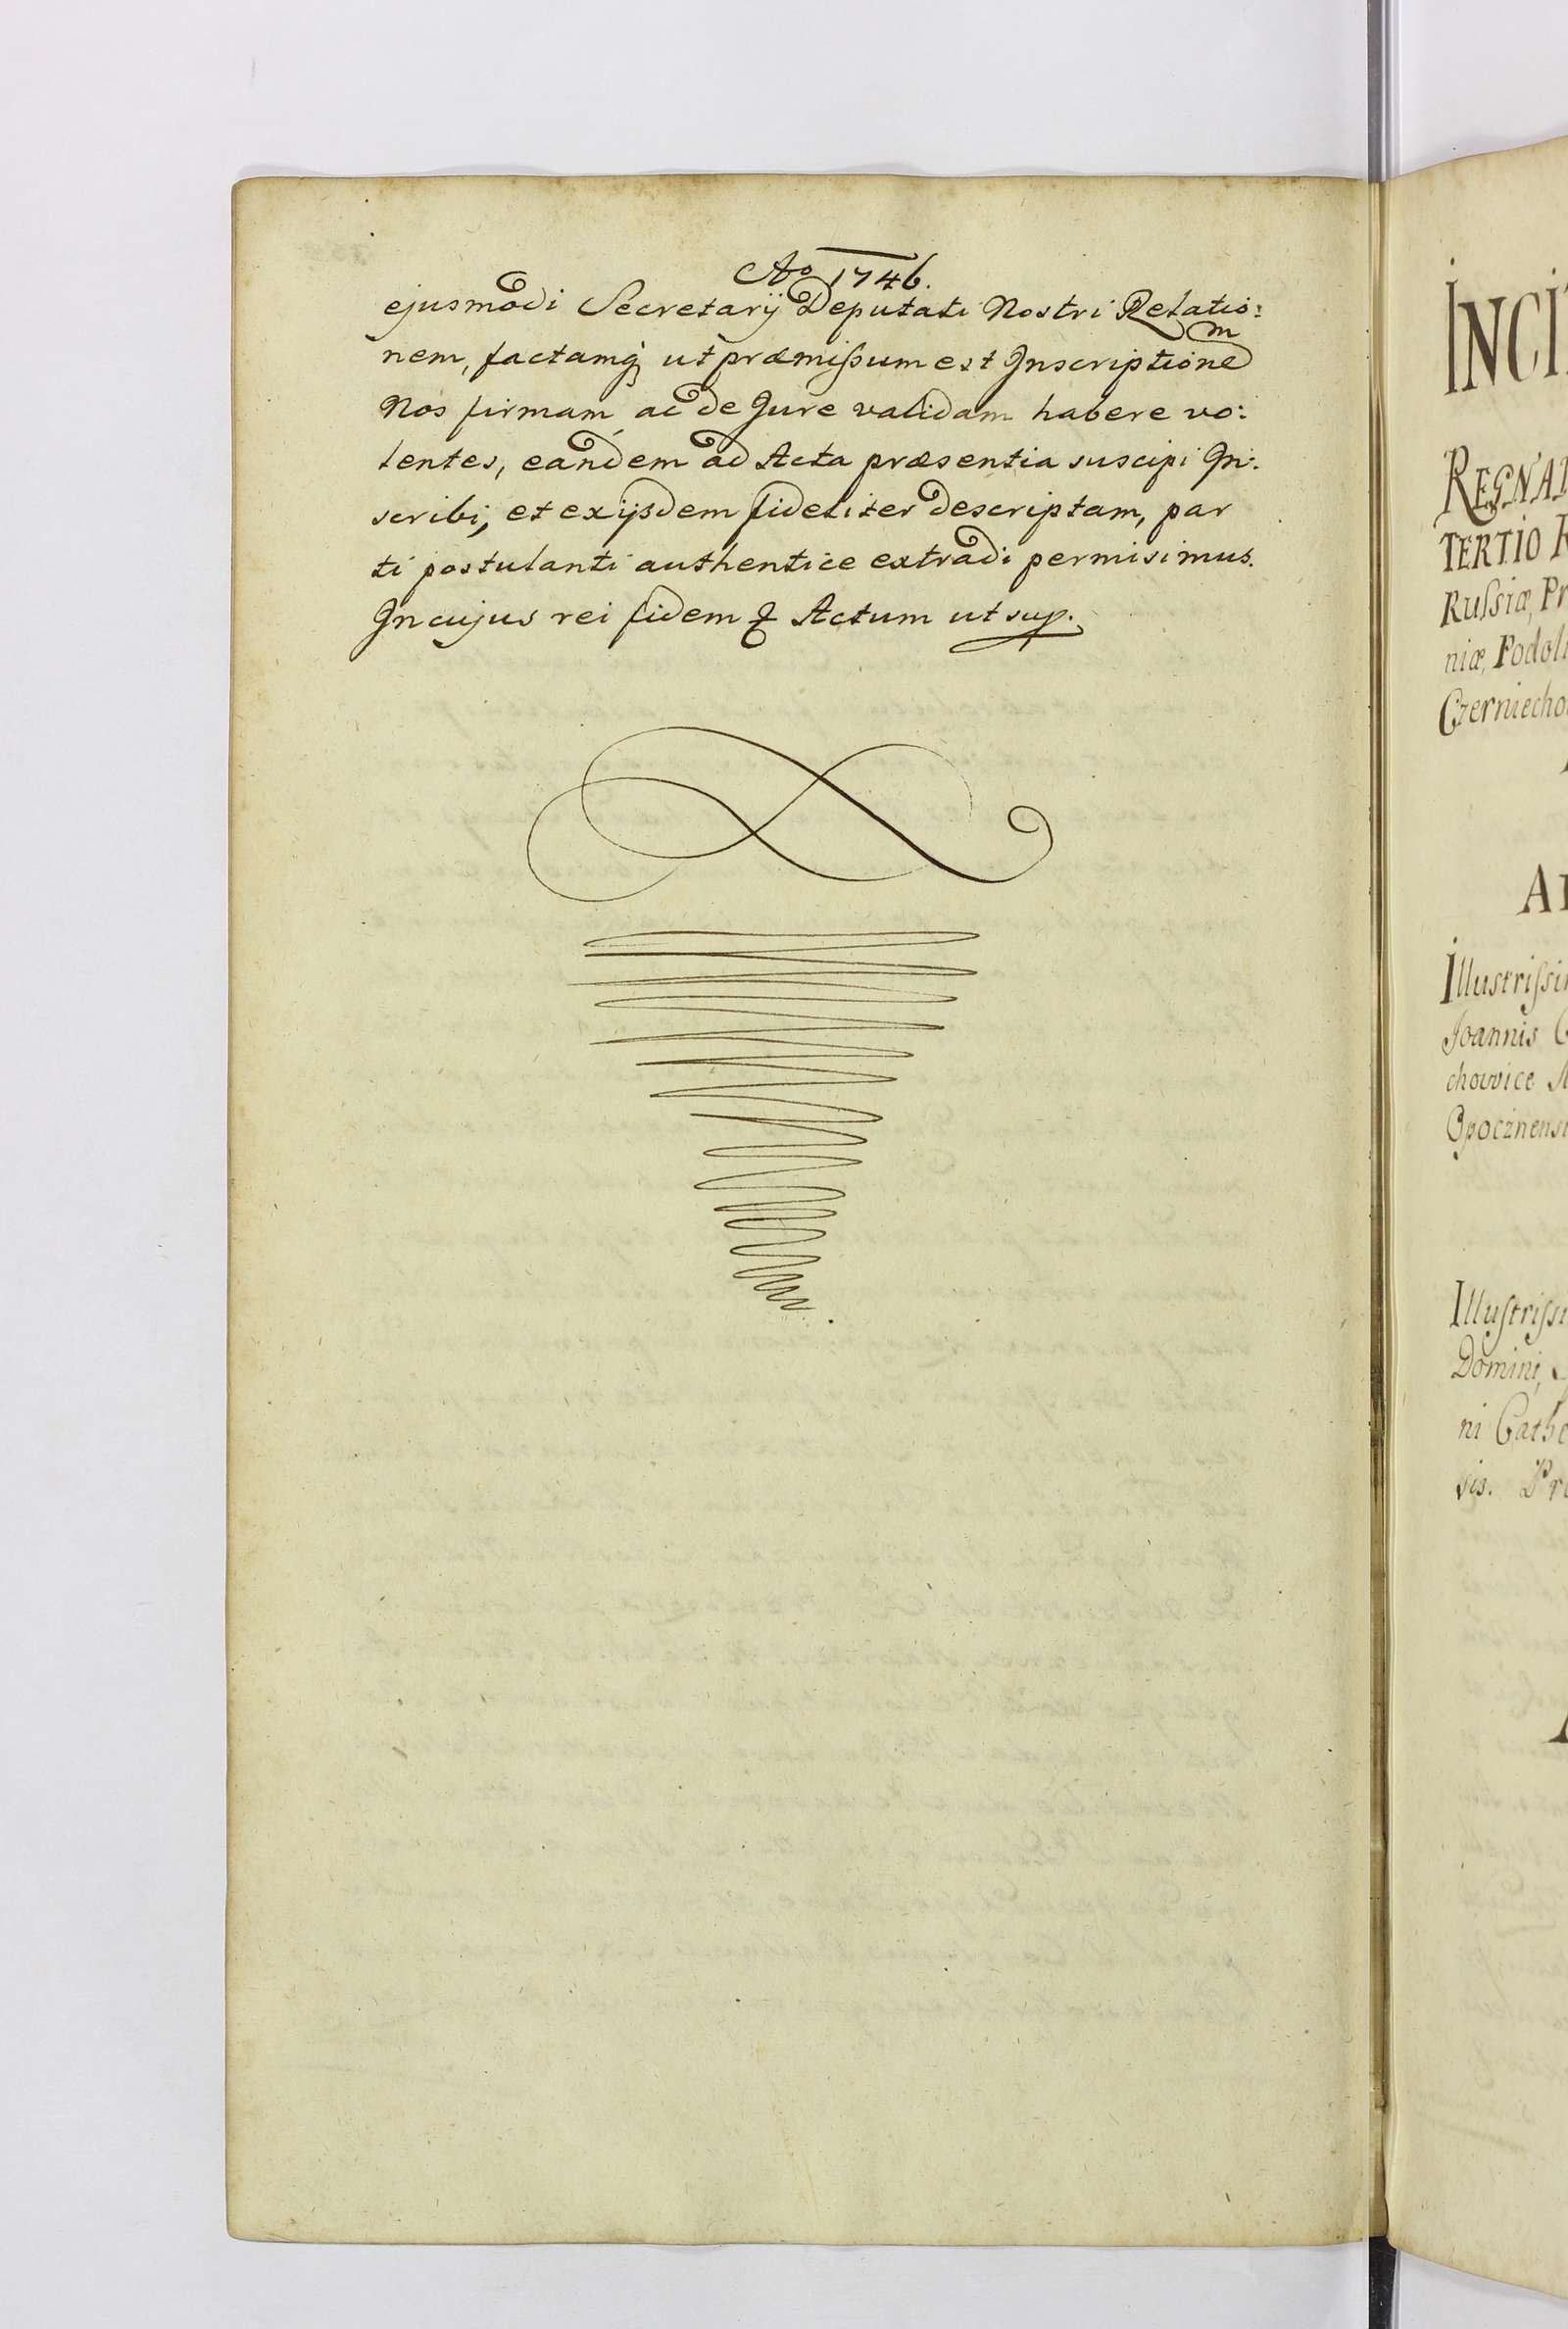 Ao 1746.
ejusmodi Secretarij Deputati Nostri Relatio:
nem, factamq; ut præmißum est Inscriptionem
Nos firmam ac de Jure validam habere vo:
lentes, eandem ad Acta præsentia suscipi In:
scribi, et ex ijsdem fideliter descriptam, par
ti postulanti authentice extradi permisimus.
In cujus rei fidem Actum ut sup.
INCI
REGNA
TERTIO
Rußiæ, Pr
niæ, Podol
Czerniecho
A
Illustrißi
Joannis
chowice
Opocznens
Illustriss
Domini,
ni Cathe
sis. Pr